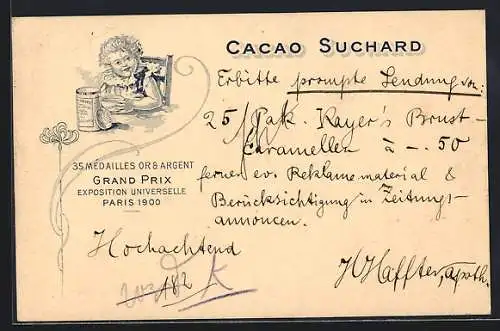 CACAO SUCHARD
Erbitte prompte Sendung von:
25/1 Pak. Kayer's Brust-
Caramellen à -.50
ferner ev. Reklamematerial &
Berücksichtigung in Zeitungs-
annoncen.
Hochachtend
H Haffter, apoth.
35 MÉDAILLES OR & ARGENT
GRAND PRIX
EXPOSITION UNIVERSELLE
PARIS 1900
182